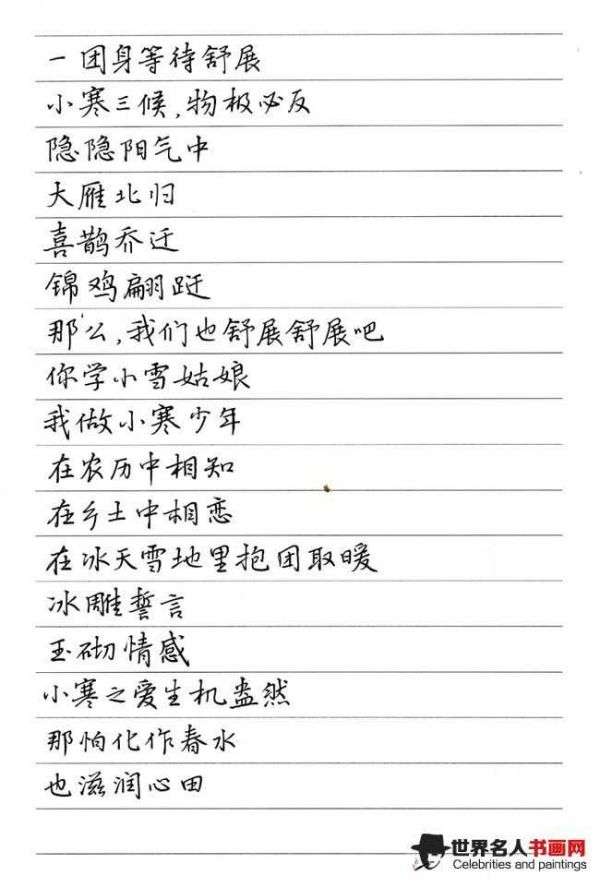 一团身等待舒展
小寒三候,物极必反
隐隐阳气中
大雁北归
喜鹊乔迁
锦鸡翩跹
那么,我们也舒展舒展吧
你学小雪姑娘
我做小寒少年
在农历中相知
在乡土中相恋
在冰天雪地里抱团取暖
冰雕誓言
玉砌情感
小寒之爱生机盎然
那怕化作春水
也滋润心田
世界名人书画网
Celebrities and paintings